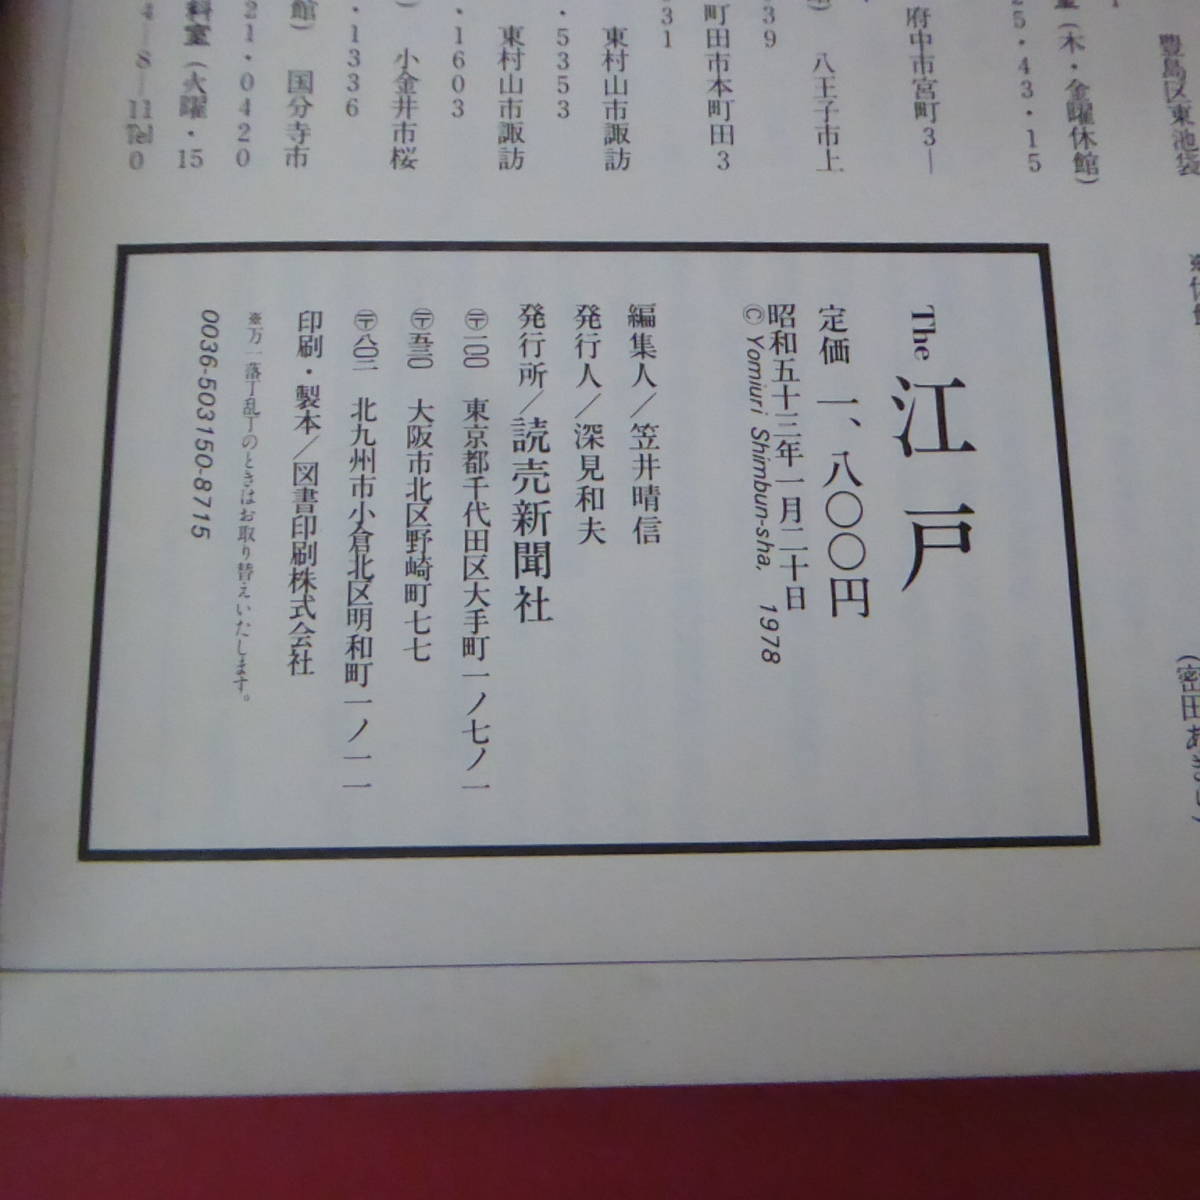 豊島区東池袋
(木・金曜休館)
25・43・15
府中市宮町3—
八王子市上
039
町田市本町田3
031
東村山市諏訪
・5353
東村山市諏訪
・1603
小金井市桜
・1336
館) 国分寺市
21・0420
料室(火曜・15
4—8—11 Tel 0
The 江戸
定価 一、八〇〇円
昭和五十三年一月二十日
© Yomiuri Shimbun-sha, 1978
編集人/笠井晴信
発行人/深見和夫
発行所/読売新聞社
〒一〇〇 東京都千代田区大手町一ノ七ノ一
〒五三〇 大阪市北区野崎町七七
〒八〇二 北九州市小倉北区明和町一ノ一一
印刷・製本/図書印刷株式会社
※万一落丁乱丁のときはお取り替えいたします。
0036-503150-8715